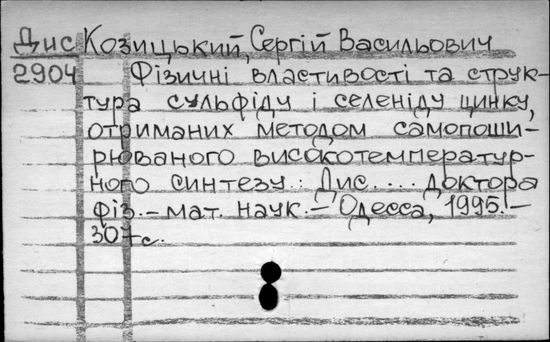 Дис Козицький, Сергій Васильович
2904 Фізичні властивості та струк-
тура сульфіду і селеніду цинку,
отриманих методом самопоши-
рюваного високотемператур-
ного синтезу : Дис. ... доктора
фіз.-мат. наук.- Одесса, 1995.-
307с.